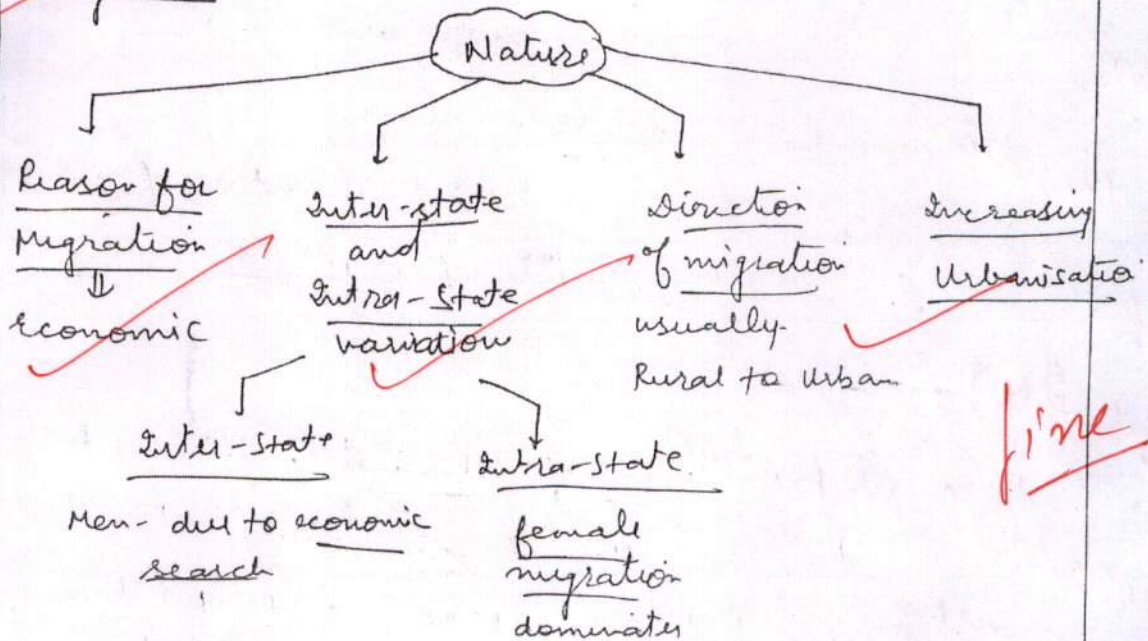 Nature
Reason for
Migration
⇓
Economic
Inter-state
and
Intra-State
variation
Direction
of migration
usually-
Rural to Urban
Increasing
Urbanisation
fine
Inter-State
Men- due to economic
search
Intra-State
female
migration
dominates